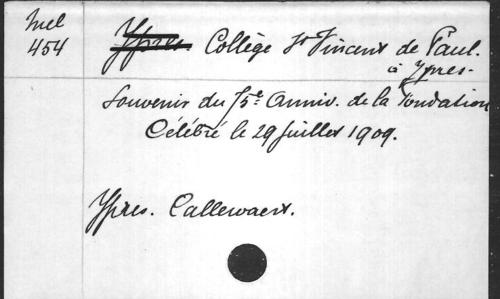 Mel
454
Ypres Collège St Vincent de Paul.
à Ypres.
Souvenir du 75e Anniv. de la Fondation
Célébré le 29 juillet 1909.
Ypres. Callewaert.